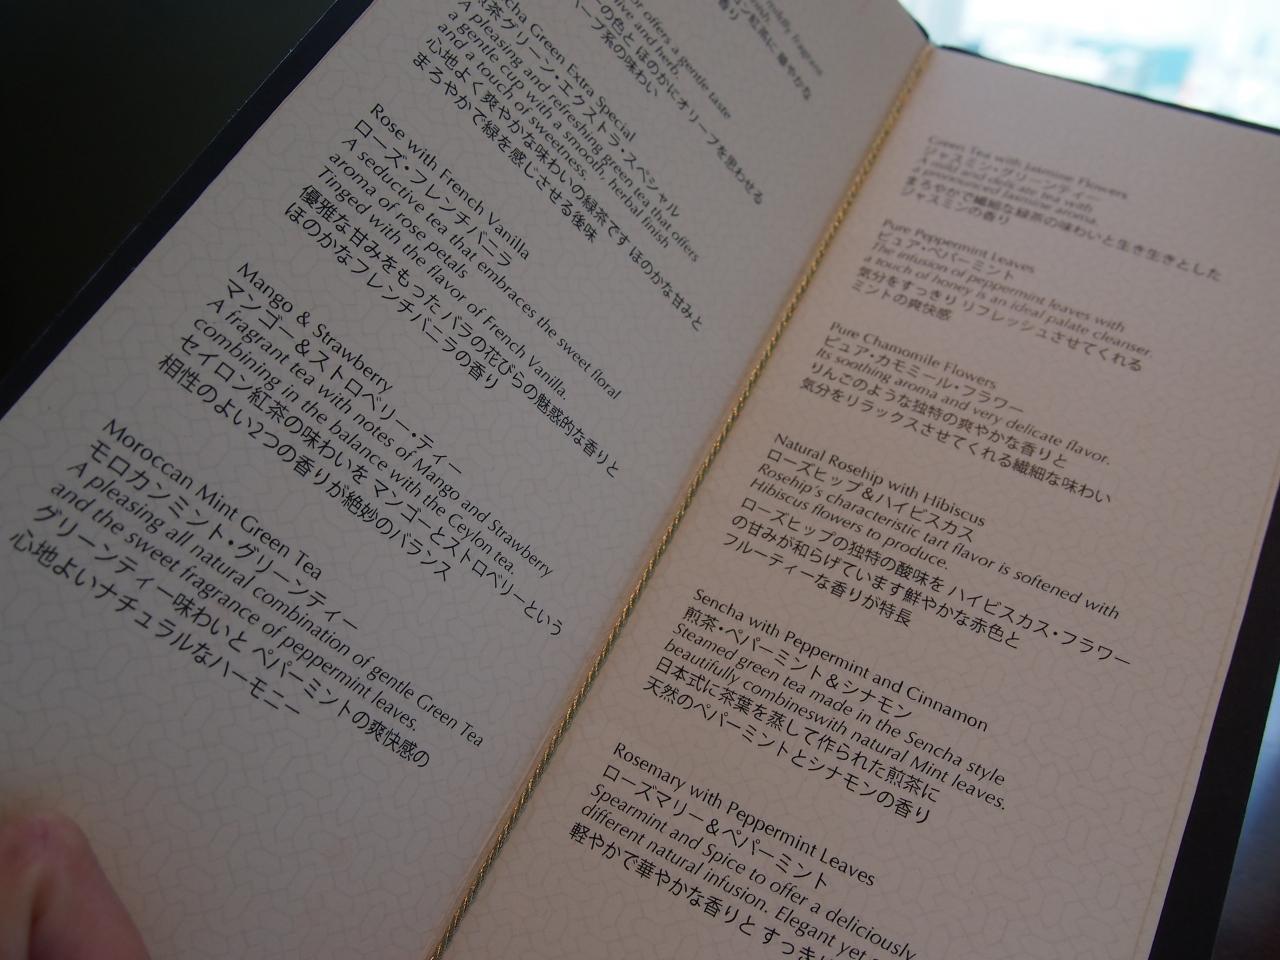 offers a gentle taste
and herb.
ほのかにオリーブを思わせる
ハーブ系の味わい
Green Extra Special
煎茶グリーン・エクストラ・スペシャル
A pleasing and refreshing green tea that offers
a gentle cup with a smooth, herbal finish
and a touch of sweetness.
心地よく爽やかな味わいの緑茶です ほのかな甘みと
まろやかで緑を感じさせる後味
Rose with French Vanilla
ローズ・フレンチバニラ
A seductive tea that embraces the sweet floral
aroma of rose petals
Tinged with the flavor of French Vanilla.
優雅な甘みをもった バラの花びらの魅惑的な香りと
ほのかなフレンチバニラの香り
Mango & Strawberry
マンゴー&ストロベリー・ティー
A fragrant tea with notes of Mango and Strawberry
combining in the balance with the Ceylon tea.
セイロン紅茶の味わいを マンゴーとストロベリーという
相性のよい2つの香りが絶妙のバランス
Moroccan Mint Green Tea
モロカンミント・グリーンティー
A pleasing all natural combination of gentle Green Tea
and the sweet fragrance of peppermint leaves.
グリーンティー味わいと ペパーミントの爽快感の
心地よいナチュラルなハーモニー
Green Tea with Jasmine Flowers
ジャスミン・グリーンティー
A mild and delicate tea with
a pronounced Jasmine aroma.
まろやかで繊細な緑茶の味わいと生き生きとした
ジャスミンの香り
Pure Peppermint Leaves
ピュア・ペパーミント
The infusion of peppermint leaves with
a touch of honey is an ideal palate cleanser.
気分をすっきり リフレッシュさせてくれる
ミントの爽快感
Pure Chamomile Flowers
ピュア・カモミール・フラワー
Its soothing aroma and very delicate flavor.
りんごのような独特の爽やかな香りと
気分をリラックスさせてくれる繊細な味わい
Natural Rosehip with Hibiscus
ローズヒップ&ハイビスカス
Rosehip's characteristic tart flavor is softened with
Hibiscus flowers to produce.
ローズヒップの独特の酸味を ハイビスカス・フラワー
の甘みが和らげています鮮やかな赤色と
フルーティーな香りが特長
Sencha with Peppermint and Cinnamon
煎茶・ペパーミント&シナモン
Steamed green tea made in the Sencha style
beautifully combineswith natural Mint leaves.
日本式に茶葉を蒸して作られた煎茶に
天然のペパーミントとシナモンの香り
Rosemary with Peppermint Leaves
ローズマリー&ペパーミント
Spearmint and Spice to offer a deliciously
different natural infusion. Elegant yet
軽やかで華やかな香りと すっき